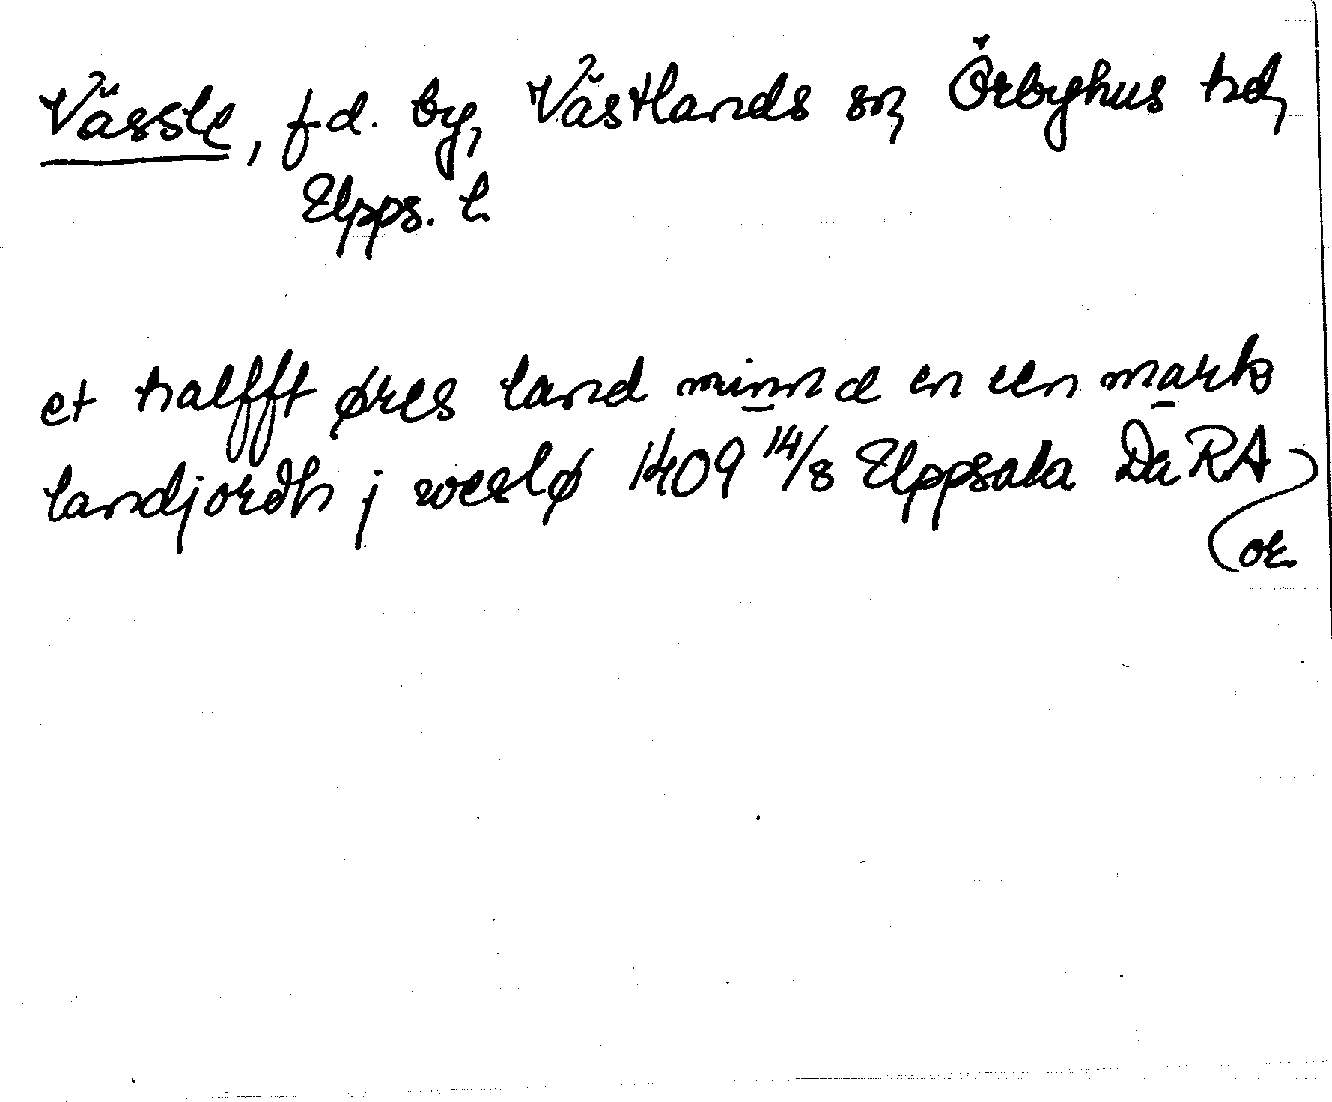 Vässle, f.d. by, Västlands sn, Örbyhus hd,
Upps. l.
et halfft øres land minnd en een mark
landjordh j weslø 1409 14/8 Uppsala Da RA
or.